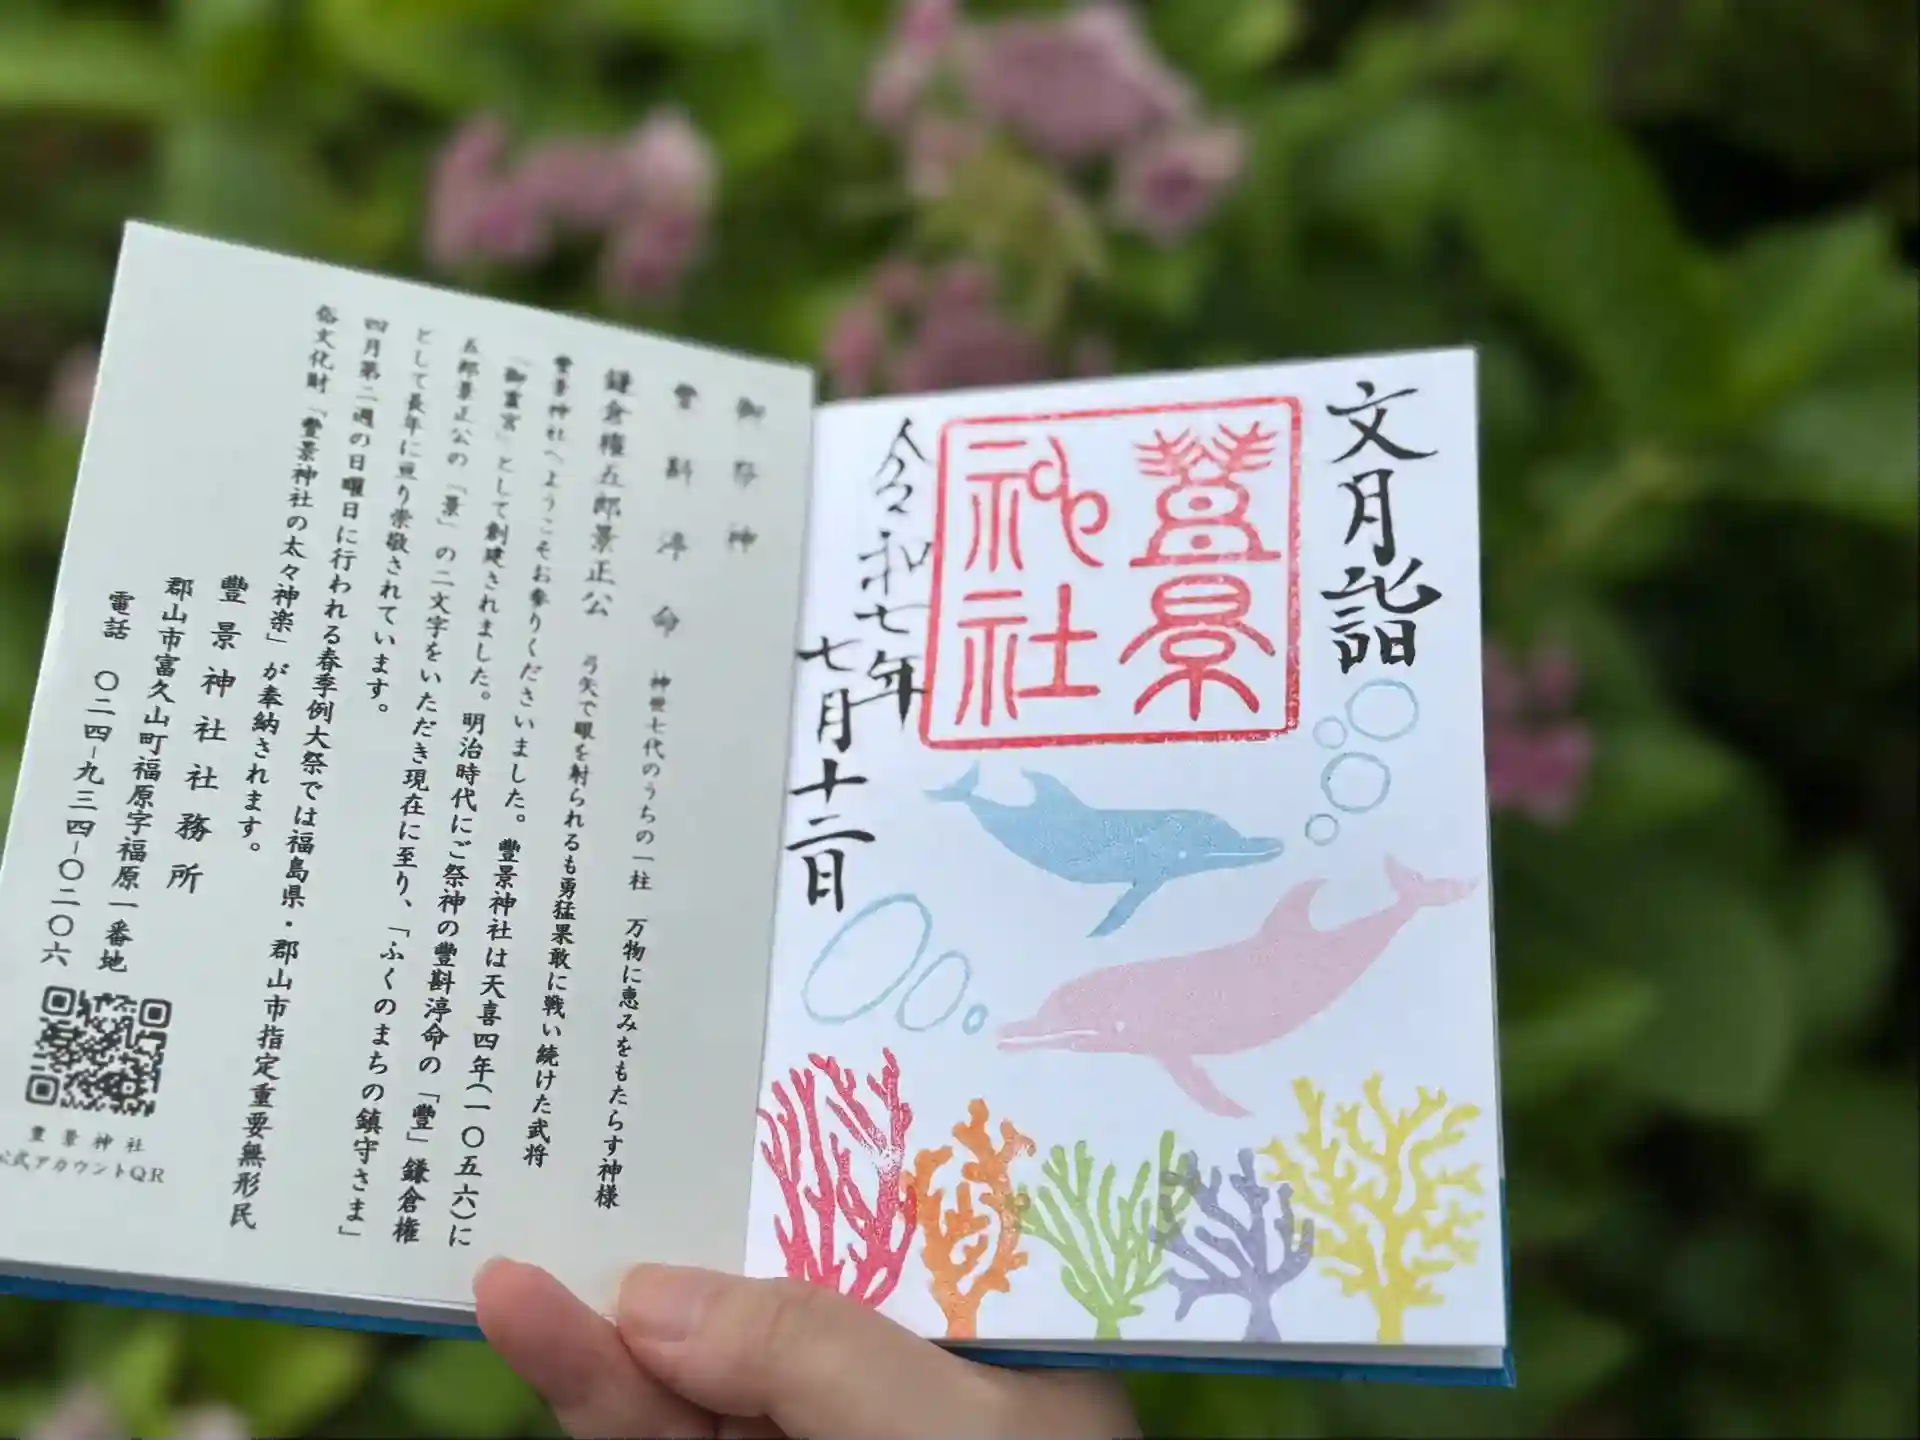 文月詣
豐景
神社
令和七年
七月十二日
御祭神
豐斟渟命 神世七代のうちの一柱 万物に恵みをもたらす神様
鎌倉権五郎景正公 弓矢で眼を射られるも勇猛果敢に戦い続けた武将
豐景神社へようこそお参りくださいました。豐景神社は天喜四年(一〇五六)に
「御霊宮」として創建されました。明治時代にご祭神の豐斟渟命の「豐」鎌倉権
五郎景正公の「景」の二文字をいただき現在に至り、「ふくのまちの鎮守さま」
として長年に亘り崇敬されています。
四月第二週の日曜日に行われる春季例大祭では福島県・郡山市指定重要無形民
俗文化財「豐景神社の太々神楽」が奉納されます。
豐景神社社務所
郡山市富久山町福原字福原一番地
電話 〇二四-九三四-〇二〇六
豐景神社
公式アカウントQR